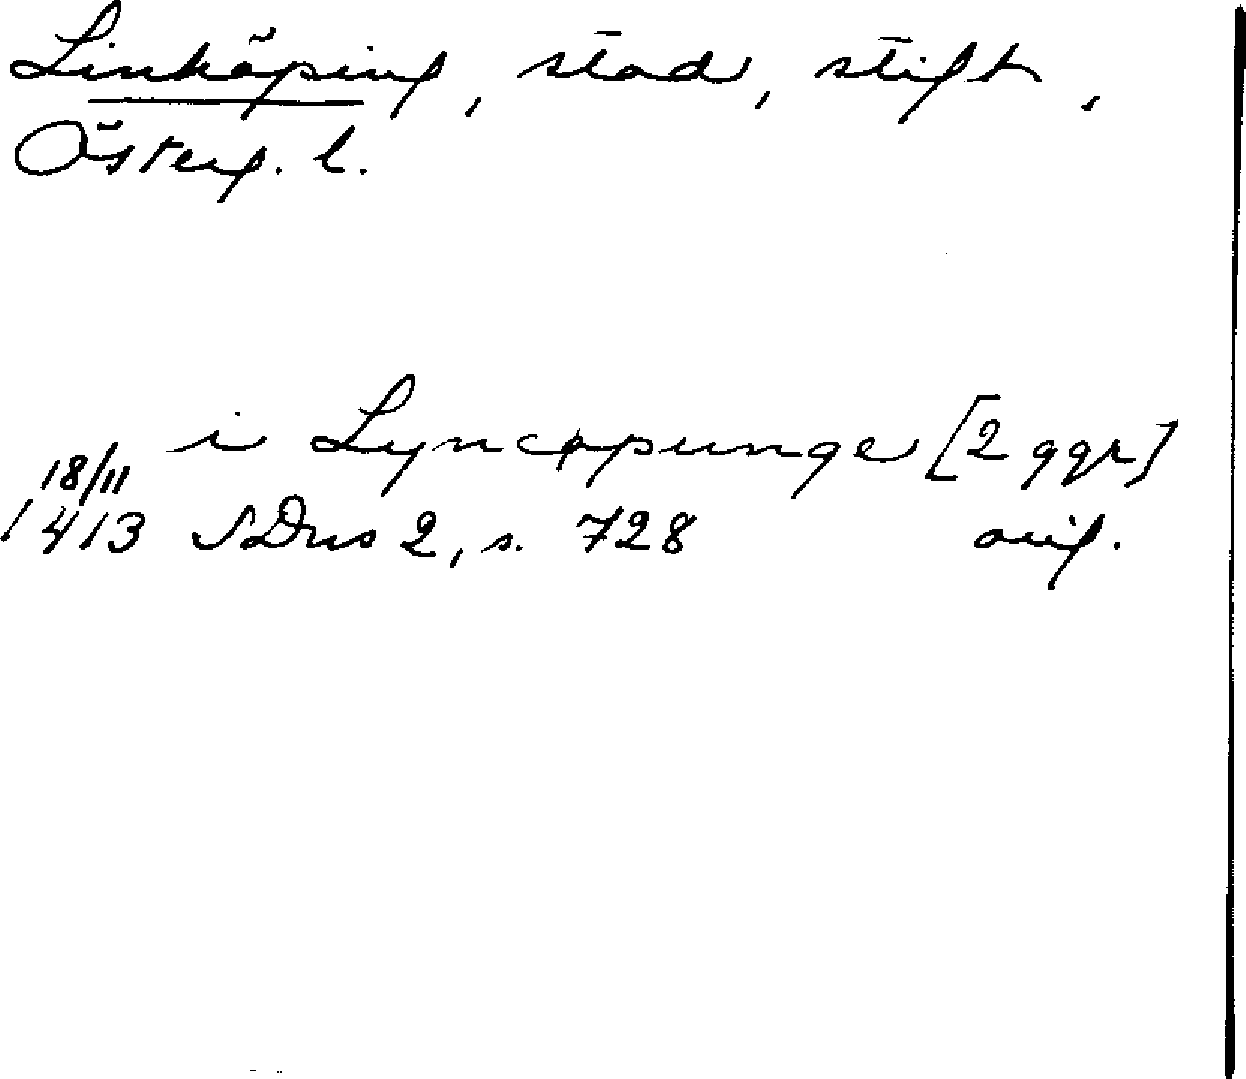 Linköping, stad, stift,
Österg. l.
i Lyncøpunge [2 ggr]
18/11
1413 SDns 2, s. 728 orig.